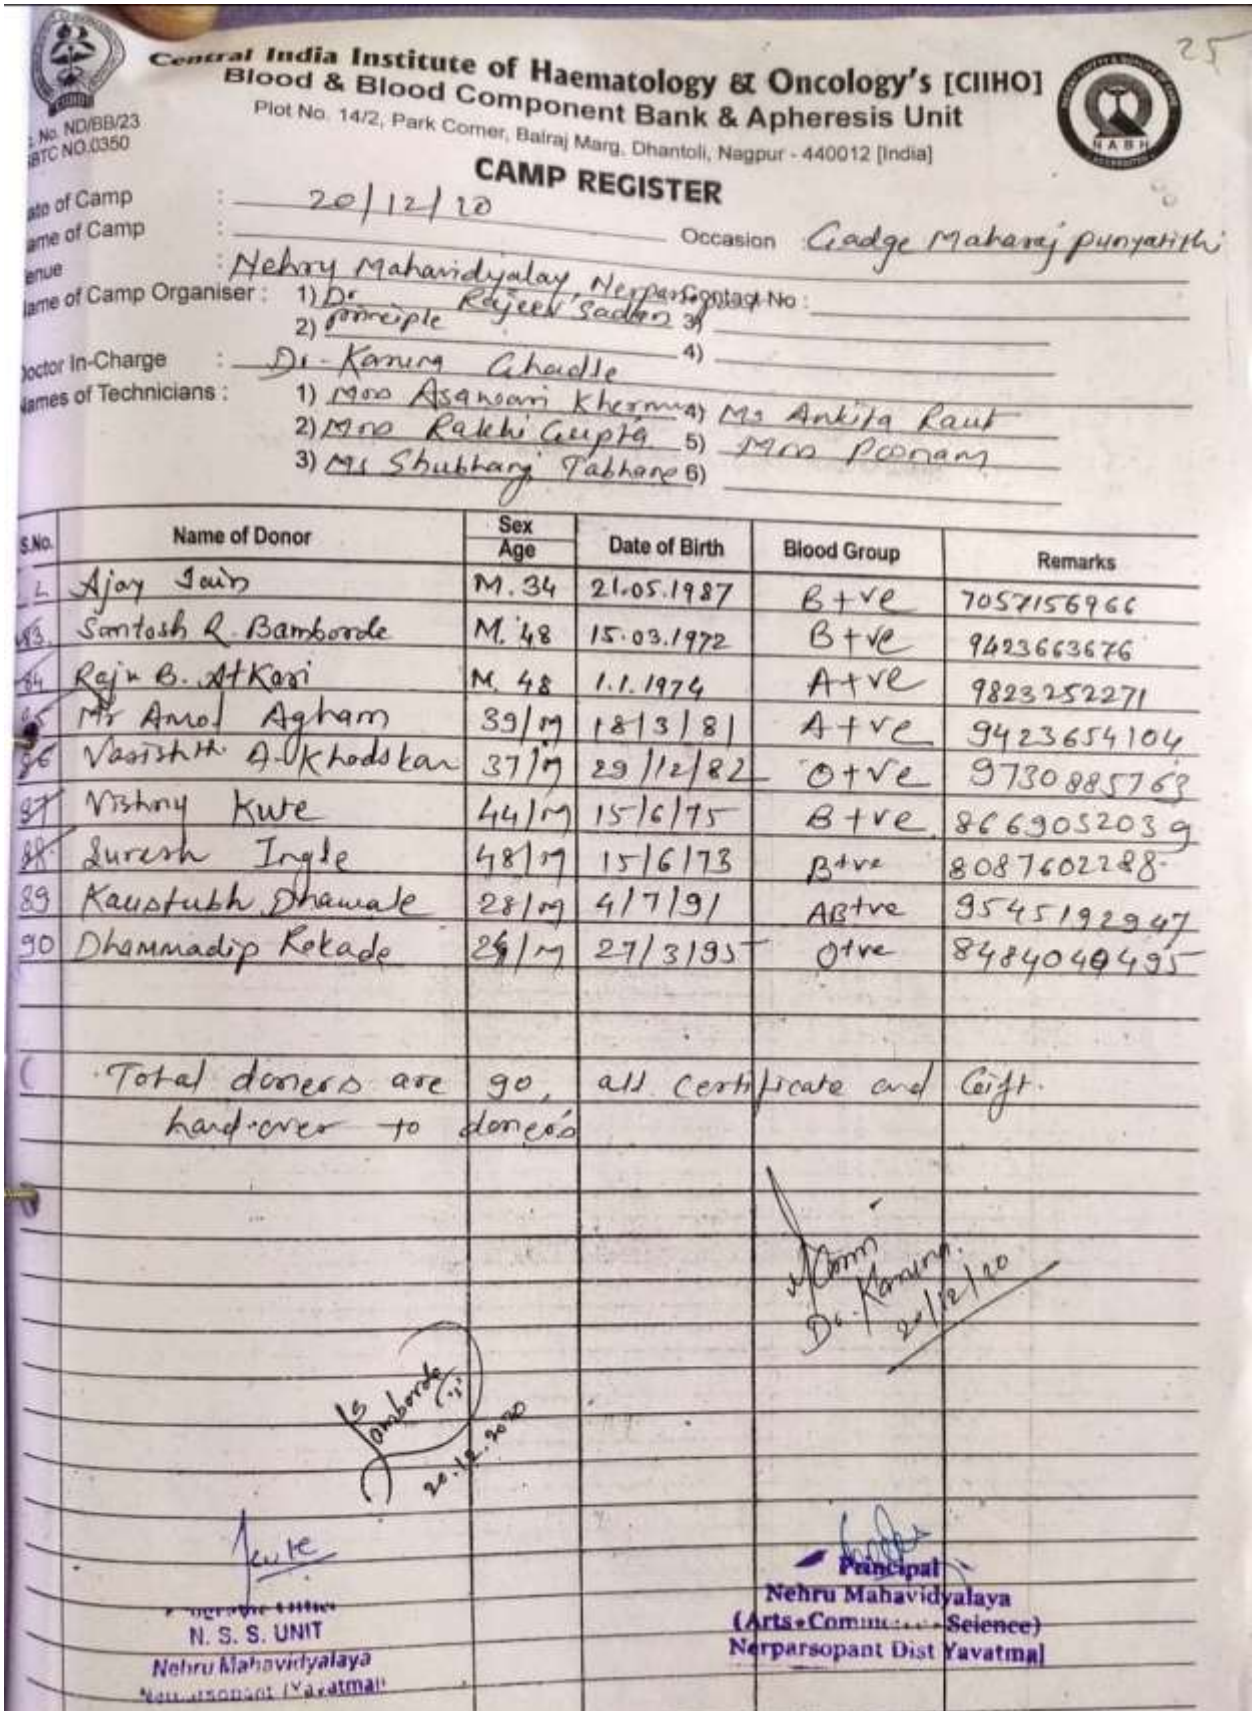 25
Central India Institute of Haematology & Oncology's [CIIHO]
Blood & Blood Component Bank & Apheresis Unit
Plot No. 14/2, Park Corner, Balraj Marg, Dhantoli, Nagpur - 440012 [India]
No. ND/BB/23
BTC NO.0350
NABH
CAMP REGISTER
of Camp : 20/12/20
of Camp : Occasion Gadge Maharaj punyatithi
: Nehry Mahavidyalay, Nerparsopant Contact No :
of Camp Organiser : 1) Dr Rajeev Sadan 3)
2) principle 4)
In-Charge : Dr. Karuna Ghadle
of Technicians : 1) Mrs Asawari 4) Ms Ankita Raut
2) Mrs Rakhi Gupta 5) Mrs Poonam
3) Ms Shubhangi Tabhane 6)
S.No. Name of Donor Sex Age Date of Birth Blood Group Remarks
Ajay Jain M. 34 21.05.1987 B+ve 7057156966
83. Santosh R. Bamborde M. 48 15.03.1972 B+ve 9423663676
84 Raju B. Atkari M. 48 1.1.1974 A+ve 9823252271
85 Mr Amol Agham 39/M 18/3/81 A+ve 9423654104
86 Vasishth A. Khodskar 37/M 29/12/82 O+ve 9730885763
87 Vishny Kute 44/M 15/6/75 B+ve 8669052039
88 Suresh Ingle 48/M 15/6/73 B+ve 8087602288
89 Kaustubh Dhawale 28/M 4/7/91 AB+ve 9545192947
90 Dhammadip Kokade /M 27/3/95 O+ve 8484040495
Total doners are 90, all certificate and Gift.
hand-over to doner's
Dr. Karuna
20/12/20
Bamborde
20.12.2020
Kute
N. S. S. UNIT
Nehru Mahavidyalaya
Nerparsopant (Yavatmal)
Principal
Nehru Mahavidyalaya
(Arts Commerce Science)
Nerparsopant Dist Yavatmal